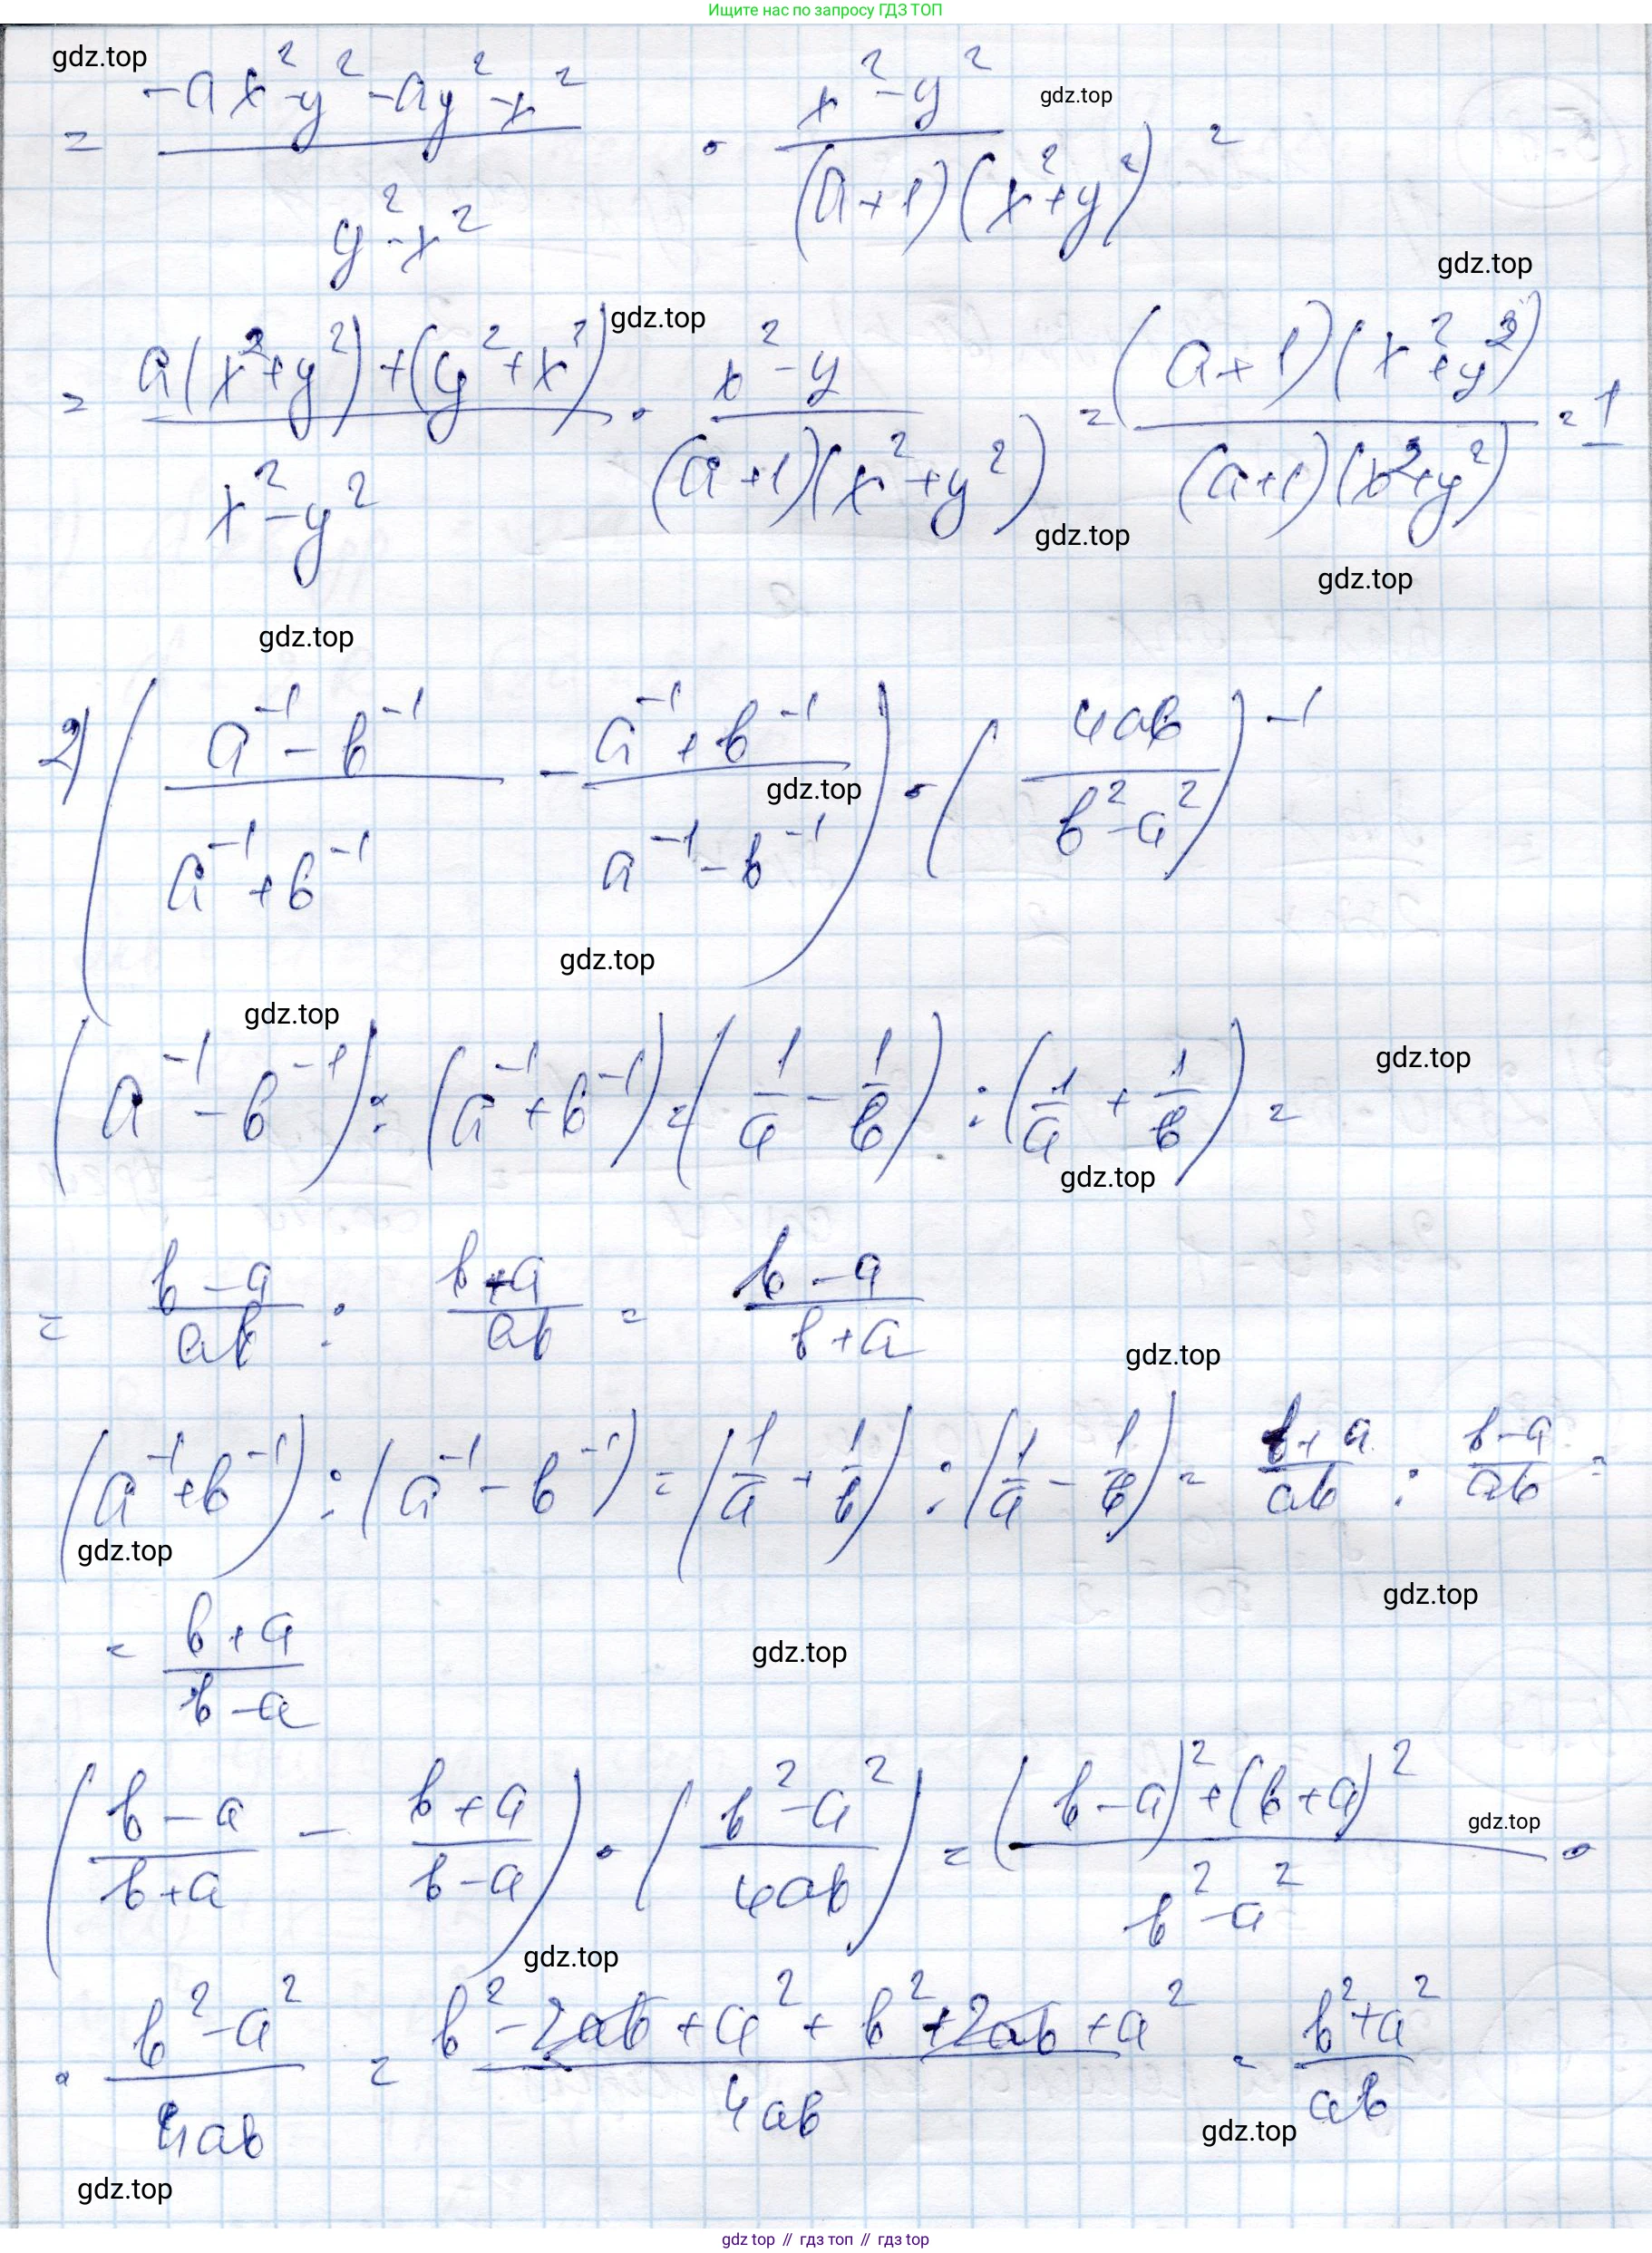 Ищите нас по запросу ГДЗ ТОП
gdz.top
= (-ax² - y² - ay² - x²)/(y² - x²) · (x² - y²)/((a+1)(x²+y²)) =
gdz.top
gdz.top
gdz.top
= (a(x²+y²)+(y²+x²))/(x²-y²) · (x²-y)/((a+1)(x²+y²)) = ((a+1)(x²+y²))/((a+1)(x²+y²)) = 1
gdz.top
gdz.top
gdz.top
2) ((a⁻¹ - b⁻¹)/(a⁻¹ + b⁻¹) - (a⁻¹ + b⁻¹)/(a⁻¹ - b⁻¹)) · (4ab/(b² - a²))⁻¹
gdz.top
gdz.top
gdz.top
(a⁻¹ - b⁻¹) : (a⁻¹ + b⁻¹) = (1/a - 1/b) : (1/a + 1/b) =
gdz.top
gdz.top
= (b-a)/ab : (b+a)/ab = (b-a)/(b+a)
gdz.top
(a⁻¹ + b⁻¹) : (a⁻¹ - b⁻¹) = (1/a + 1/b) : (1/a - 1/b) = (b+a)/ab : (b-a)/ab =
gdz.top
gdz.top
= (b+a)/(b-a)
gdz.top
((b-a)/(b+a) - (b+a)/(b-a)) · ((b²-a²)/4ab) = ((b-a)²+(b+a)²)/(b²-a²) ·
gdz.top
gdz.top
· (b²-a²)/4ab = (b² - 2ab + a² + b² + 2ab + a²)/4ab = (b²+a²)/ab
gdz.top
gdz.top
gdz top // гдз топ // гдз top